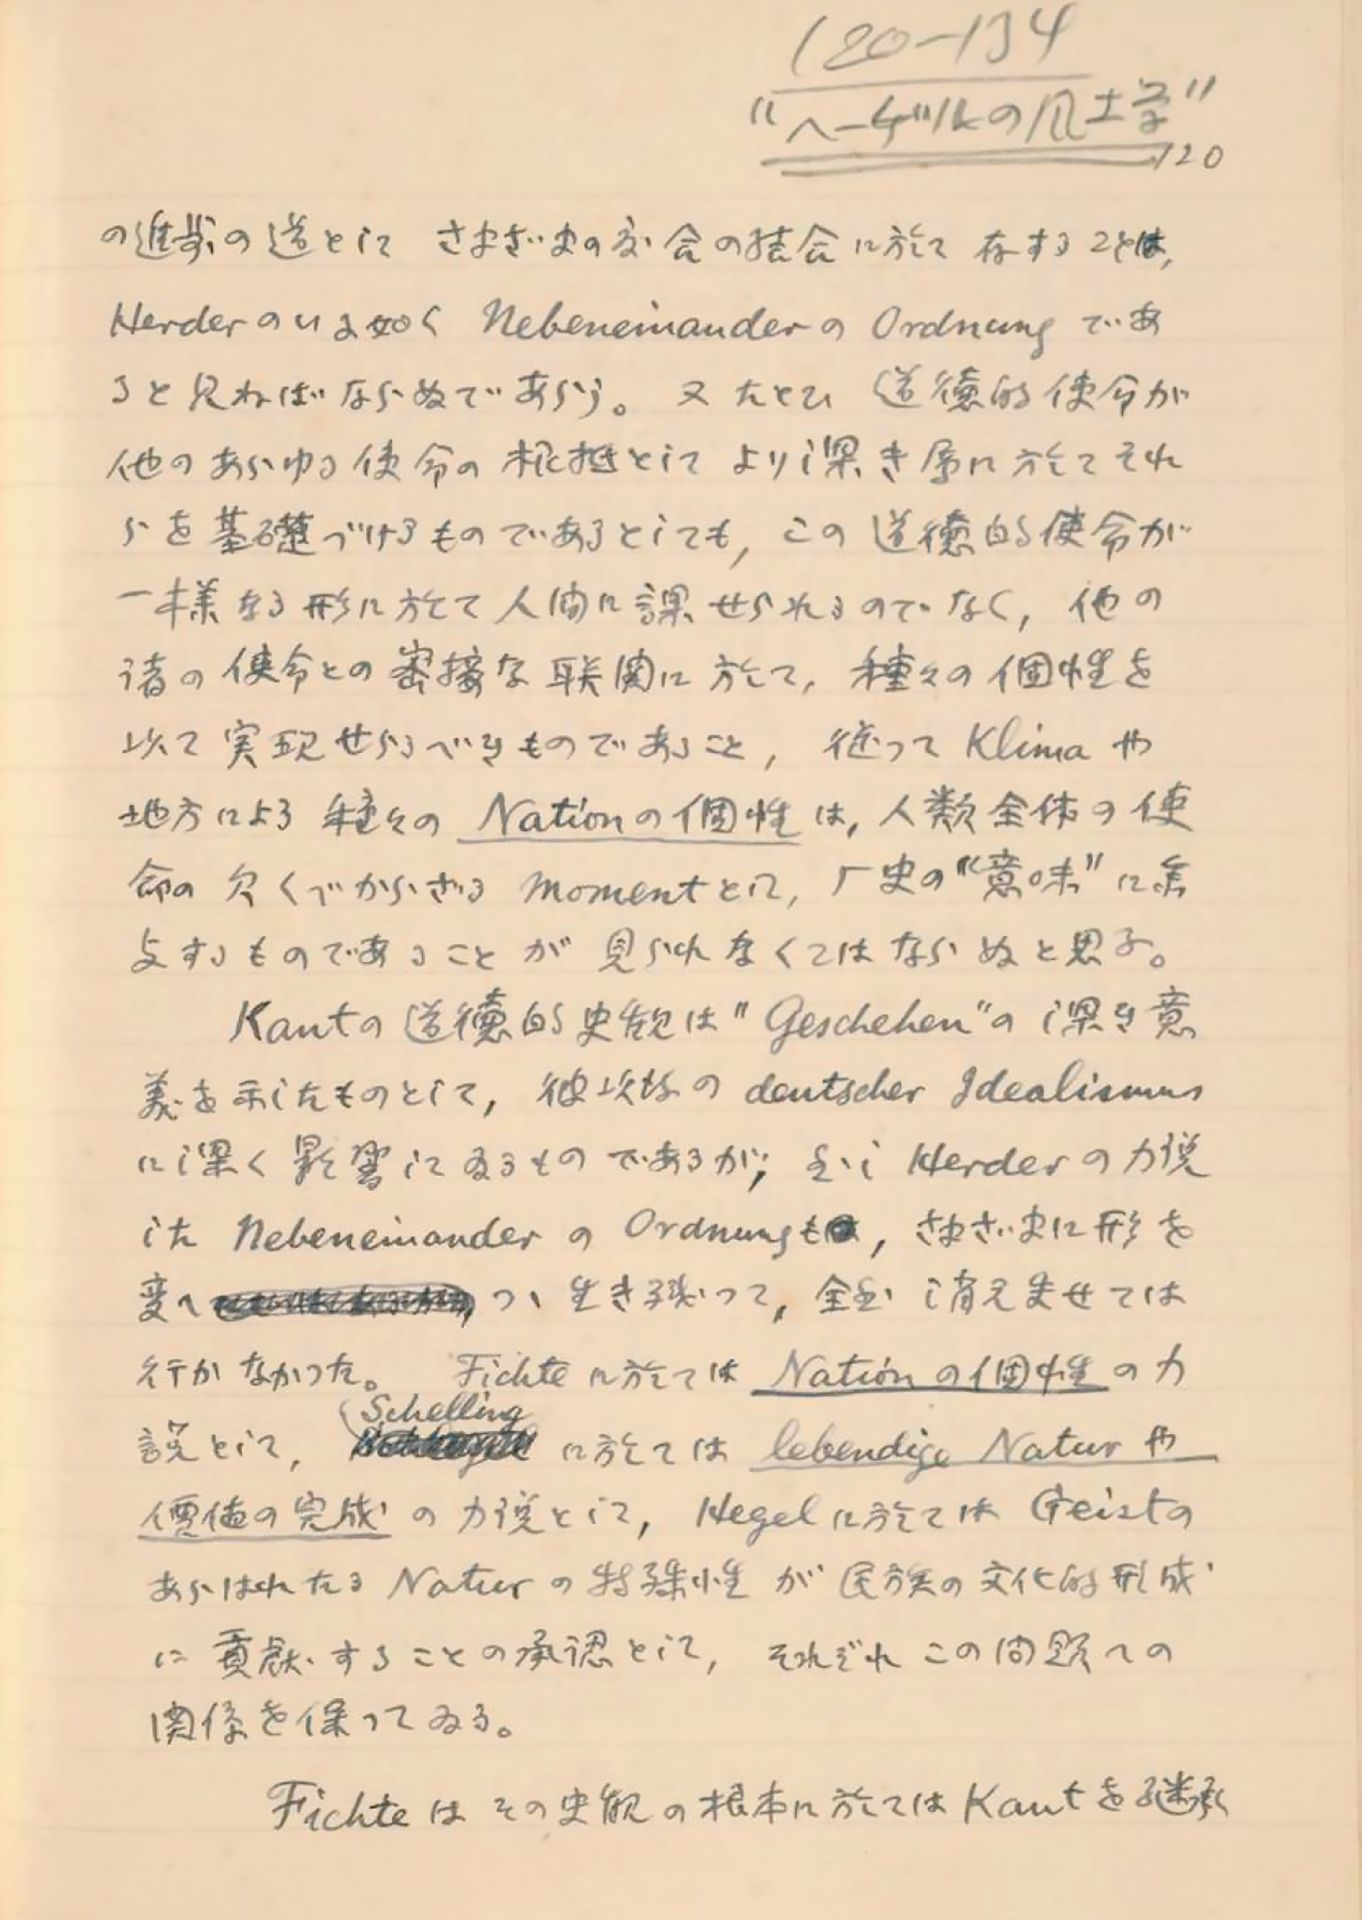 120-134
"ヘーゲルの風土学"
120
の進歩の道として さまざまの社会の結合に於て 存することは,
Herderのいふ如く Nebeneinanderの Ordnung であ
ると見ねばならぬであらう。又たとひ 道徳的使命が
他のあらゆる使命の根柢として より深き層に於てそれ
らを基礎づけるものであるとしても, この道徳的使命が
一様なる形に於て人間に課せられるのでなく, 他の
諸の使命との密接な联関に於て, 種々の個性を
以て実現せらるべきものであること, 従って Klima や
地方による種々の Nationの個性は, 人類全体の使
命の欠くべからざる Momentとして, 厂史の"意味"に参
与するものであることが 見られなくてはならぬと思ふ。
Kantの道徳的史観は"Geschehen"の深き意
義を示したものとして, 彼以後の deutscher Idealismus
に深く影響してゐるものであるが, 然し Herderの力説
した Nebeneinander の Ordnungも, さまざまに形を
変へつゝ生き残って, 全然消え失せては
行かなかった。 Fichteに於ては Nationの個性の力
説として, Schelling に於ては lebendige Natur や
價値の完成の力説として, Hegelに於ては Geistの
あらはれたる Naturの特殊性が民族の文化的形成
に貢献することの承認として, それぞれこの問題への
関係を保ってゐる。
Fichteはその史観の根本に於ては Kantを継承